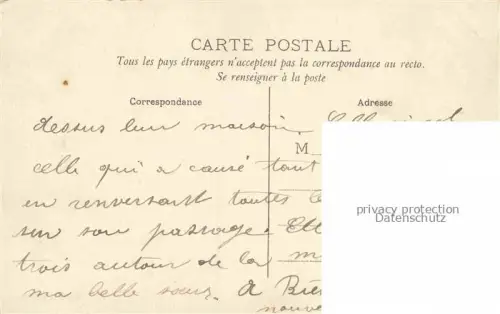 CARTE POSTALE
Tous les pays étrangers n'acceptent pas la correspondance au recto.
Se renseigner à la poste
Correspondance
Adresse
dessus leur maison.
M
celle qui a causé tout
en renversant toutes
sur son passage.
trois autour de la
ma belle sœur. A
privacy protection
Datenschutz